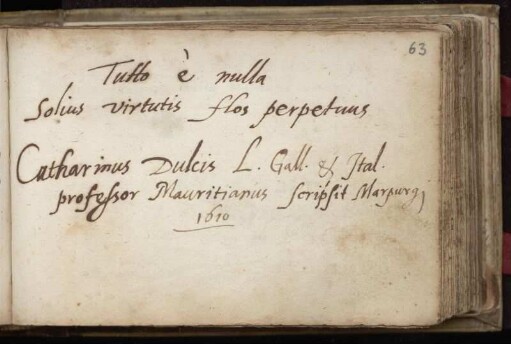 63
Tutto è nulla
Solius virtutis flos perpetuus
Catharinus Dulcis L. Gall. & Ital.
professor Mauritianus scripsit Marpurgj
1610